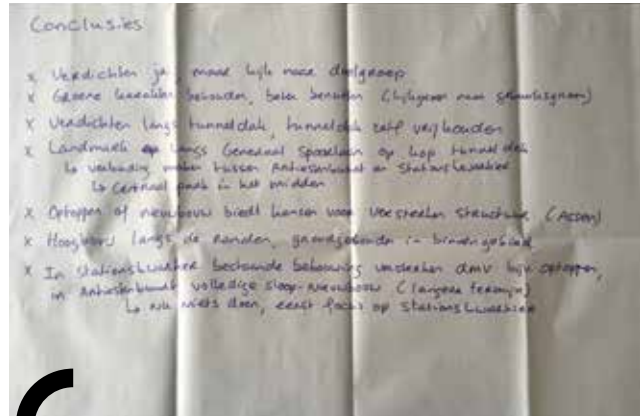 Conclusies
x Verdichten ja, maar kijk naar doelgroep
x Groene kwaliteiten behouden, beter benutten (kijkgroen naar gebruiksgroen)
x Verdichten langs tunneldak, tunneldak zelf vrijhouden
x Landmark op langs Generaal Spoorlaan op kop tunneldak
↳ verbinding maken tussen en Stationskwartier
↳ Centraal park in het midden
x Optoppen of nieuwbouw biedt kansen voor versterken structuur (Assen)
x Hoogbouw langs de randen, grondgebonden in binnengebied
x In Stationskwartier bestaande bebouwing dmv bijv optoppen,
in volledige sloop-nieuwbouw (langere termijn)
↳ nu niets doen, eerst focus op Stationskwartier